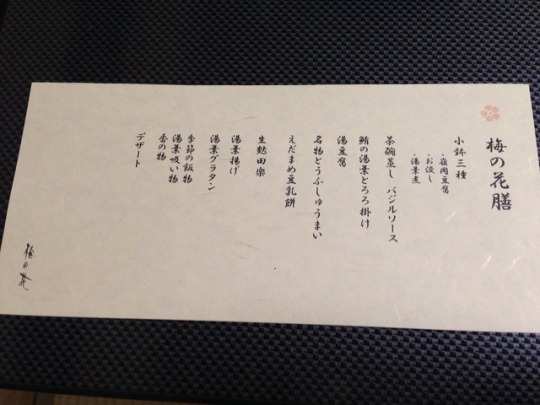 梅の花膳
小鉢三種
・嶺岡豆腐
・お浸し
・湯葉煮
茶碗蒸し バジルソース
鮪の湯葉とろろ掛け
湯豆腐
名物とうふしゅうまい
えだまめ豆乳餅
生麩田楽
湯葉揚げ
湯葉グラタン
季節の飯物
湯葉吸い物
香の物
デザート
梅の花